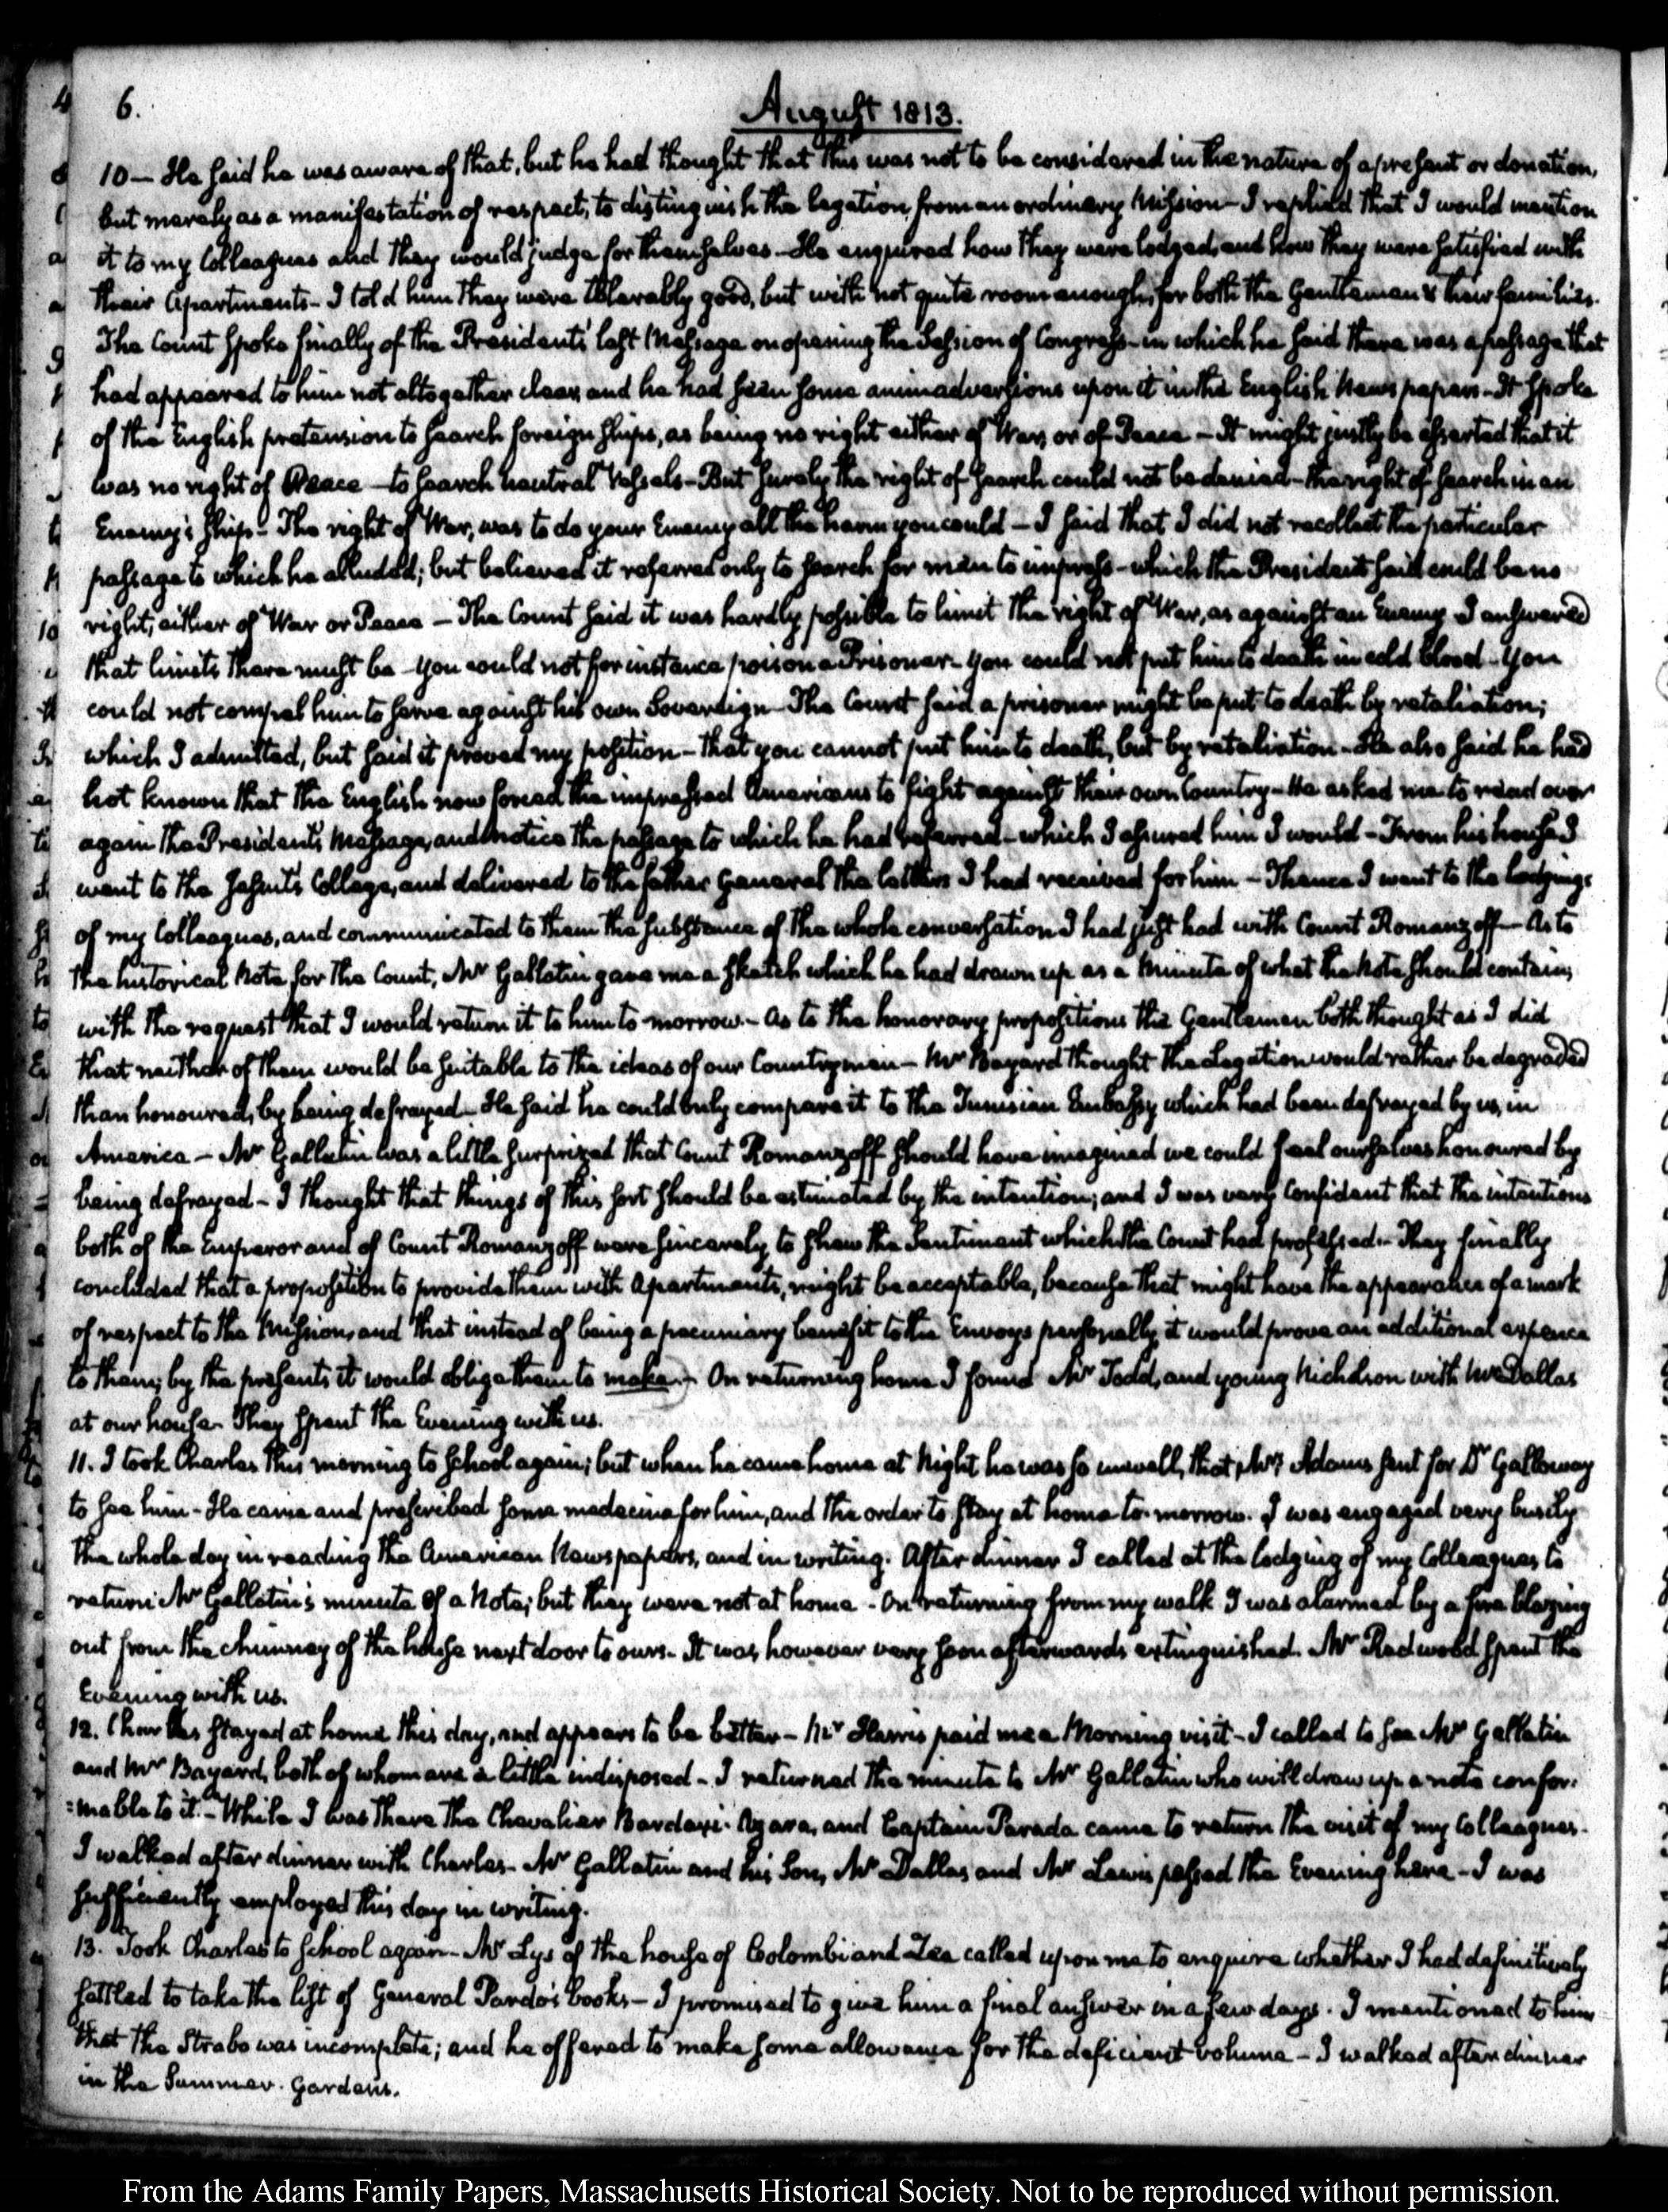 6.
August 1813.
10 — He said he was aware of that, but he had thought that this was not to be considered in the nature of a present or donation,
but merely as a manifestation of respect, to distinguish the legation, from an ordinary Mission — I replied that I would mention
it to my Colleagues and they would judge for themselves — He enquired how they were lodged, and how they were satisfied with
their Apartments — I told him they were tolerably good, but with not quite room enough, for both the Gentlemen & their families.
The Count spoke finally of the President's last Message on opening the Session of Congress — in which he said there was a passage that
had appeared to him not altogether clear, and he had seen some animadversions upon it in the English Newspapers — It spoke
of the English pretension to search foreign ships, as being no right either of War, or of Peace — It might justly be asserted that it
was no right of Peace — to search neutral Vessels — But surely the right of search could not be denied — the right of search in an
Enemy's ship — The right of War, was to do your Enemy all the harm you could — I said that I did not recollect the particular
passage to which he alluded; but believed it referred only to search for men to impress — which the President said could be no
right, either of War or Peace — The Count said it was hardly possible to limit the right of War, as against an Enemy — I answered
that limits there must be — you could not for instance poison a Prisoner — you could not put him to death in cold blood — you
could not compel him to serve against his own Sovereign — The Count said a prisoner might be put to death by retaliation;
which I admitted, but said it proved my position — that you cannot put him to death, but by retaliation — He also said he had
not known that the English now forced the impressed Americans to fight against their own Country — He asked me to read over
again the President's Message, and notice the passage to which he had referred — which I assured him I would — From his house I
went to the Jesuits College, and delivered to the father General the letters I had received for him — Thence I went to the lodgings
of my Colleagues, and communicated to them the substance of the whole conversation I had just had with Count Romanzoff — As to
the historical Note for the Count, Mr Gallatin gave me a sketch which he had drawn up as a minute of what the Note should contain,
with the request that I would return it to him to-morrow — As to the honorary propositions the Gentlemen both thought as I did
that neither of them would be suitable to the ideas of our Countrymen — Mr Bayard thought the Legation would rather be degraded
than honoured, by being defrayed — He said he could only compare it to the Tunisian Embassy which had been defrayed by us, in
America — Mr Gallatin was a little surprized that Count Romanzoff should have imagined we could feel ourselves honoured by
being defrayed — I thought that things of this sort should be estimated by the intention; and I was very confident that the intentions
both of the Emperor and of Count Romanzoff were sincerely to shew the Sentiment which the Count had professed — They finally
concluded that a proposition to provide them with apartments, might be acceptable, because that might have the appearance of a mark
of respect to the Mission, and that instead of being a pecuniary benefit to the Envoys personally, it would prove an additional expence
to them; by the presents it would oblige them to make. — On returning home I found Mr Todd, and young Nicholson with Mr Dallas
at our house. They spent the Evening with us.
11. I took Charles this morning to School again; but when he came home at Night he was so unwell, that Mrs Adams sent for Dr Galloway
to see him — He came and prescribed some medecine for him, and the order to stay at home to-morrow. I was engaged very busily
the whole day in reading the American Newspapers, and in writing. After dinner I called at the lodging of my Colleagues to
return Mr Gallatin's minute of a Note; but they were not at home — On returning from my walk I was alarmed by a fire blazing
out from the chimney of the house next door to ours — It was however very soon afterwards extinguished. Mr Redwood spent the
Evening with us.
12. Charles stayed at home this day, and appears to be better — Mr Harris paid me a Morning visit — I called to see Mr Gallatin
and Mr Bayard, both of whom are a little indisposed — I returned the minute to Mr Gallatin who will draw up a note confor-
=mable to it. — While I was there the Chevalier Bardaxi-Azara, and Captain Parada came to return the visit of my Colleagues —
I walked after dinner with Charles — Mr Gallatin and his Son, Mr Dallas and Mr Lewis passed the Evening here — I was
sufficiently employed this day in writing.
13. Took Charles to School again — Mr Lys of the house of Colombi and Zea called upon me to enquire whether I had definitively
settled to take the list of General Pardo's books — I promised to give him a final answer in a few days. I mentioned to him
that the Strabo was incomplete; and he offered to make some allowance for the deficient volume — I walked after dinner
in the Summer-Gardens.
From the Adams Family Papers, Massachusetts Historical Society. Not to be reproduced without permission.